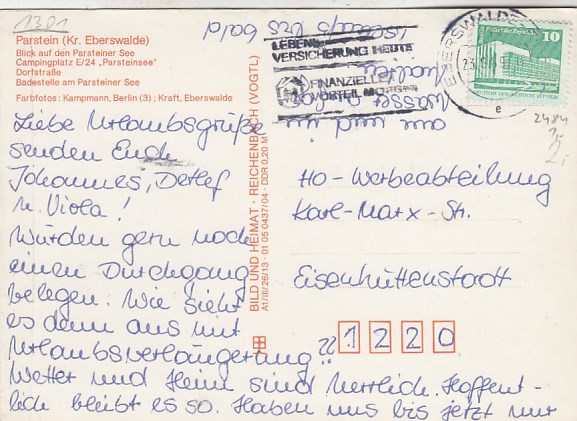 1301
Parstein (Kr. Eberswalde)
Blick auf den Parsteiner See
Campingplatz E/24 „Parsteinsee"
Dorfstraße
Badestelle am Parsteiner See
Farbfotos: Kampmann, Berlin (3) ; Kraft, Eberswalde
Liebe Urlaubsgrüße
senden Euch
Johannes, Detlef
u. Viola!
Würden gern noch
einen Durchgang
belegen. Wie sieht
es denn aus mit
Urlaubsverlängerung??
Wetter und Heim sind herrlich. Hoffent-
lich bleibt es so. Haben uns bis jetzt nur
am und im
Wasser
bis bald
BILD UND HEIMAT · REICHENBACH (VOGTL)
A1/III/26/13 · 01 05 0437/04 · DDR 0,20 M
LEBENS-
VERSICHERUNG HEUTE
FINANZIELLER
VORTEIL MORGEN
EBERSWALDE
e
10
DEUTSCHE DEMOKRATISCHE REPUBLIK
2484
HO-Werbeabteilung
Karl-Marx-Str.
Eisenhüttenstadt
1220